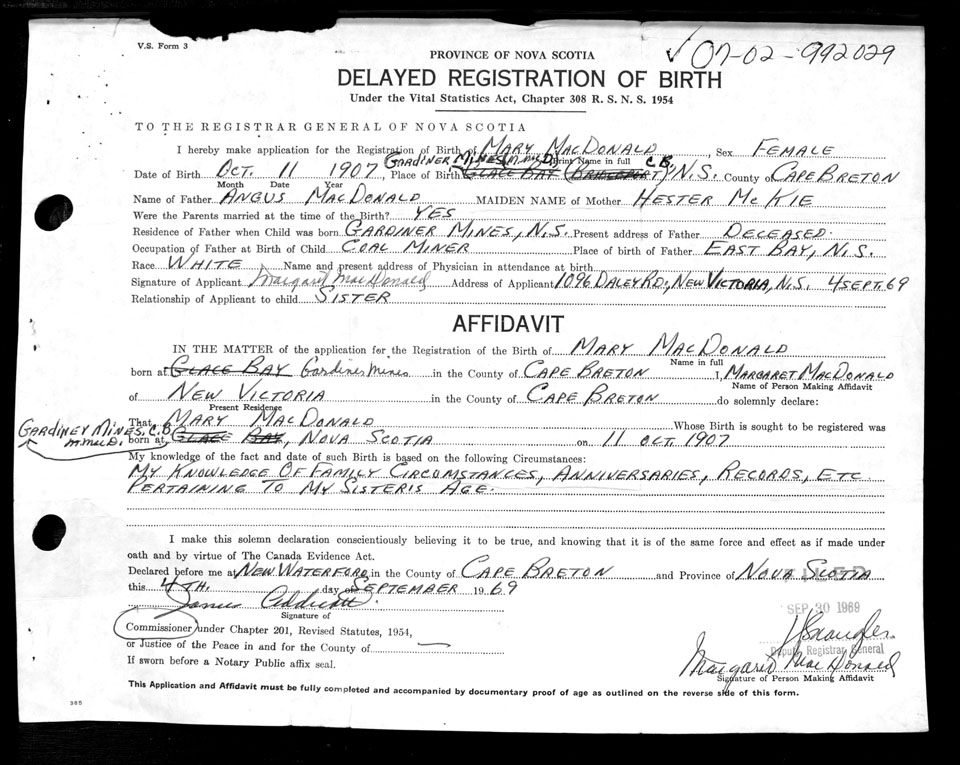 V.S. Form 3
PROVINCE OF NOVA SCOTIA
✓ 07-02-992029
DELAYED REGISTRATION OF BIRTH
Under the Vital Statistics Act, Chapter 308 R. S. N. S. 1954
TO THE REGISTRAR GENERAL OF NOVA SCOTIA
I hereby make application for the Registration of Birth of MARY MACDONALD, Sex FEMALE
GARDINER MINES, (M.MacD.) Print Name in full C.B.
Date of Birth OCT. 11 1907, Place of Birth GLACE BAY (BRIDGEPORT) N.S. County of CAPE BRETON
Month Date Year
Name of Father ANGUS MACDONALD MAIDEN NAME of Mother HESTER MCKIE
Were the Parents married at the time of the Birth? YES
Residence of Father when Child was born GARDINER MINES, N.S. Present address of Father DECEASED.
Occupation of Father at Birth of Child COAL MINER Place of birth of Father EAST BAY, N.S.
Race WHITE Name and present address of Physician in attendance at birth
Signature of Applicant Margaret MacDonald Address of Applicant 1096 DALEY RD., NEW VICTORIA, N.S. 4 SEPT. 69
Relationship of Applicant to child SISTER
AFFIDAVIT
IN THE MATTER of the application for the Registration of the Birth of MARY MACDONALD
Name in full
born at GLACE BAY Gardiner Mines in the County of CAPE BRETON I, MARGARET MACDONALD
Name of Person Making Affidavit
of NEW VICTORIA in the County of CAPE BRETON do solemnly declare:
Present Residence
That MARY MACDONALD Whose Birth is sought to be registered was
GARDINEY MINES, C.B.
M.MacD.
born at GLACE BAY, NOVA SCOTIA on 11 OCT. 1907
My knowledge of the fact and date of such Birth is based on the following Circumstances:
MY KNOWLEDGE OF FAMILY CIRCUMSTANCES, ANNIVERSARIES, RECORDS, ETC
PERTAINING TO MY SISTER'S AGE.
I make this solemn declaration conscientiously believing it to be true, and knowing that it is of the same force and effect as if made under
oath and by virtue of The Canada Evidence Act.
Declared before me at NEW WATERFORD in the County of CAPE BRETON and Province of NOVA SCOTIA
this 4TH. day of SEPTEMBER 1969
James
Signature of
SEP 30 1969
Commissioner under Chapter 201, Revised Statutes, 1954,
or Justice of the Peace in and for the County of
Deputy Registrar General
If sworn before a Notary Public affix seal.
Margaret MacDonald
Signature of Person Making Affidavit
This Application and Affidavit must be fully completed and accompanied by documentary proof of age as outlined on the reverse side of this form.
385